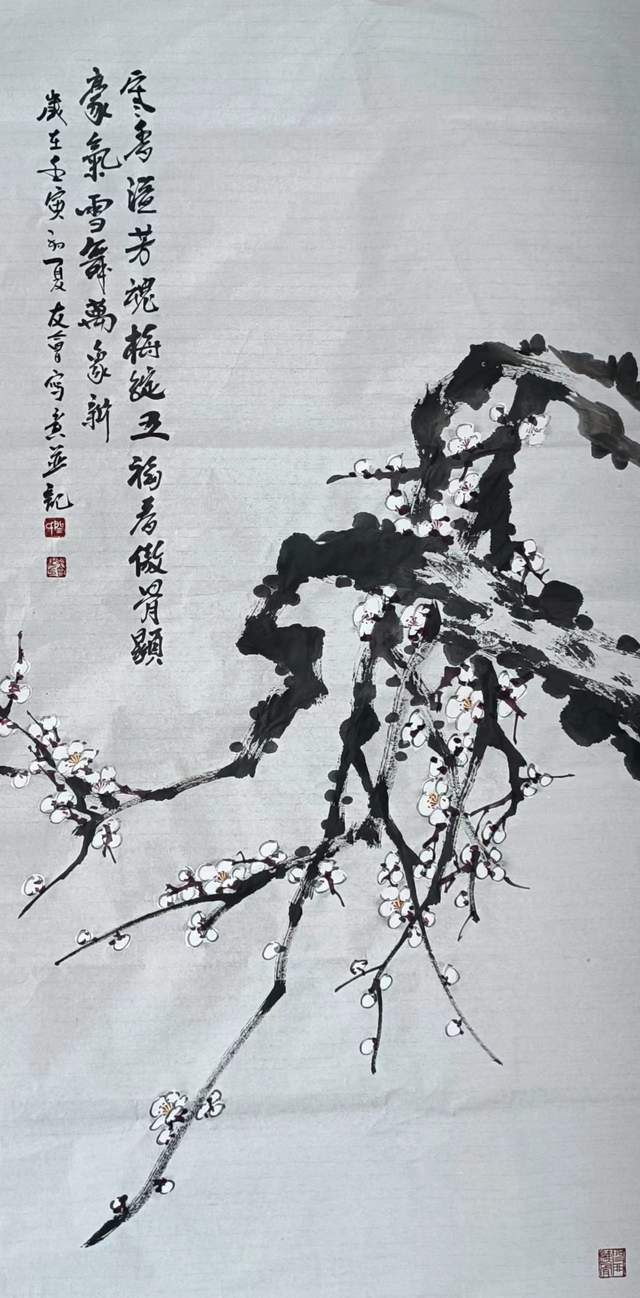 寒香溢芳魂梅綻五福春傲骨顯
豪氣雪舞萬象新
歲在壬寅初夏友會寫意並記